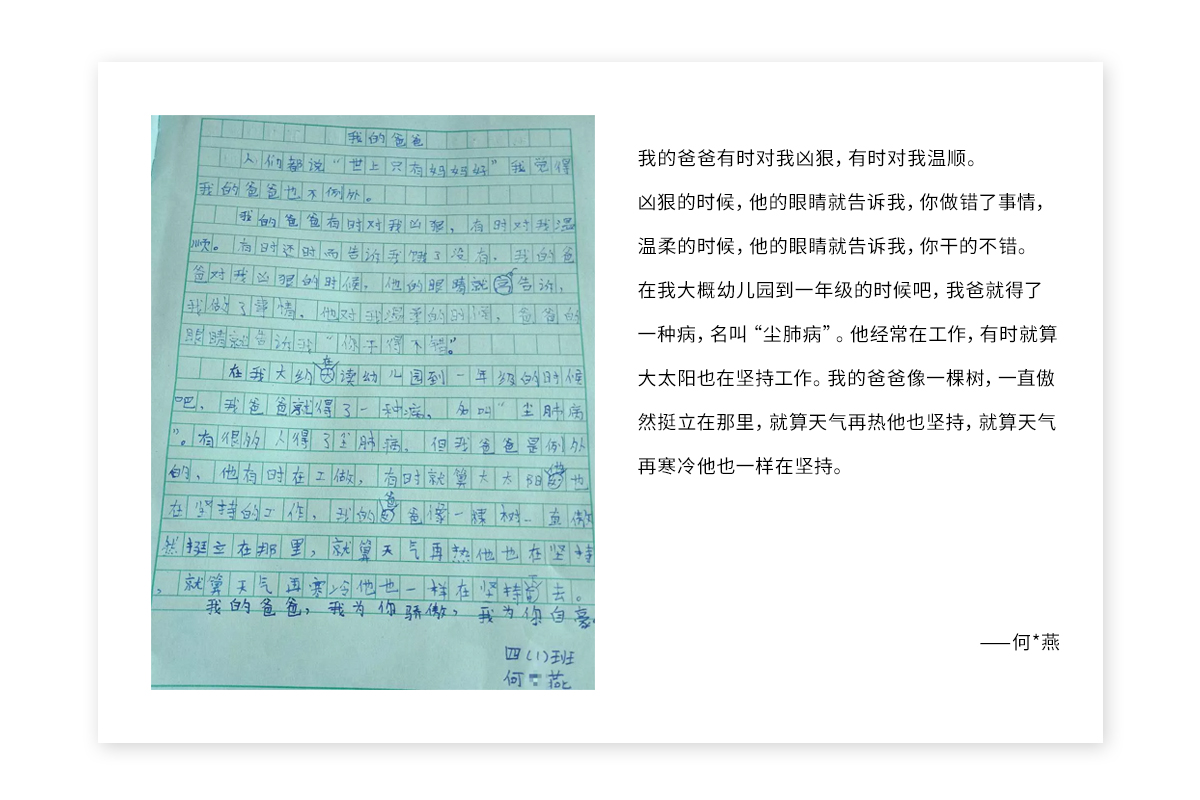 我的爸爸
人们都说“世上只有妈妈好”我觉得
我的爸爸也不例外。
我的爸爸有时对我凶狠，有时对我温
顺。有时还时而告诉我饿了没有，我的爸
爸对我凶狠的时候，他的眼睛就会告诉，
我做了事情，他对我温柔的时候，爸爸的
眼睛就告诉我“你干得不错。”
在我大约在读幼儿园到一年级的时候
吧，我爸爸就得了一种病，名叫“尘肺病
”。有很多人得了尘肺病，但我爸爸是例外
的，他有时在工做，有时就算大太阳他也
在坚持的工作，我的爸爸像一棵树一直傲
然挺立在那里，就算天气再热他也在坚持
，就算天气再寒冷他也一样在坚持下去。
我的爸爸，我为你骄傲，我为你自豪。
四(1)班
何 燕
我的爸爸有时对我凶狠，有时对我温顺。
凶狠的时候，他的眼睛就告诉我，你做错了事情，
温柔的时候，他的眼睛就告诉我，你干的不错。
在我大概幼儿园到一年级的时候吧，我爸就得了
一种病，名叫“尘肺病”。他经常在工作，有时就算
大太阳也在坚持工作。我的爸爸像一棵树，一直傲
然挺立在那里，就算天气再热他也坚持，就算天气
再寒冷他也一样在坚持。
——何*燕